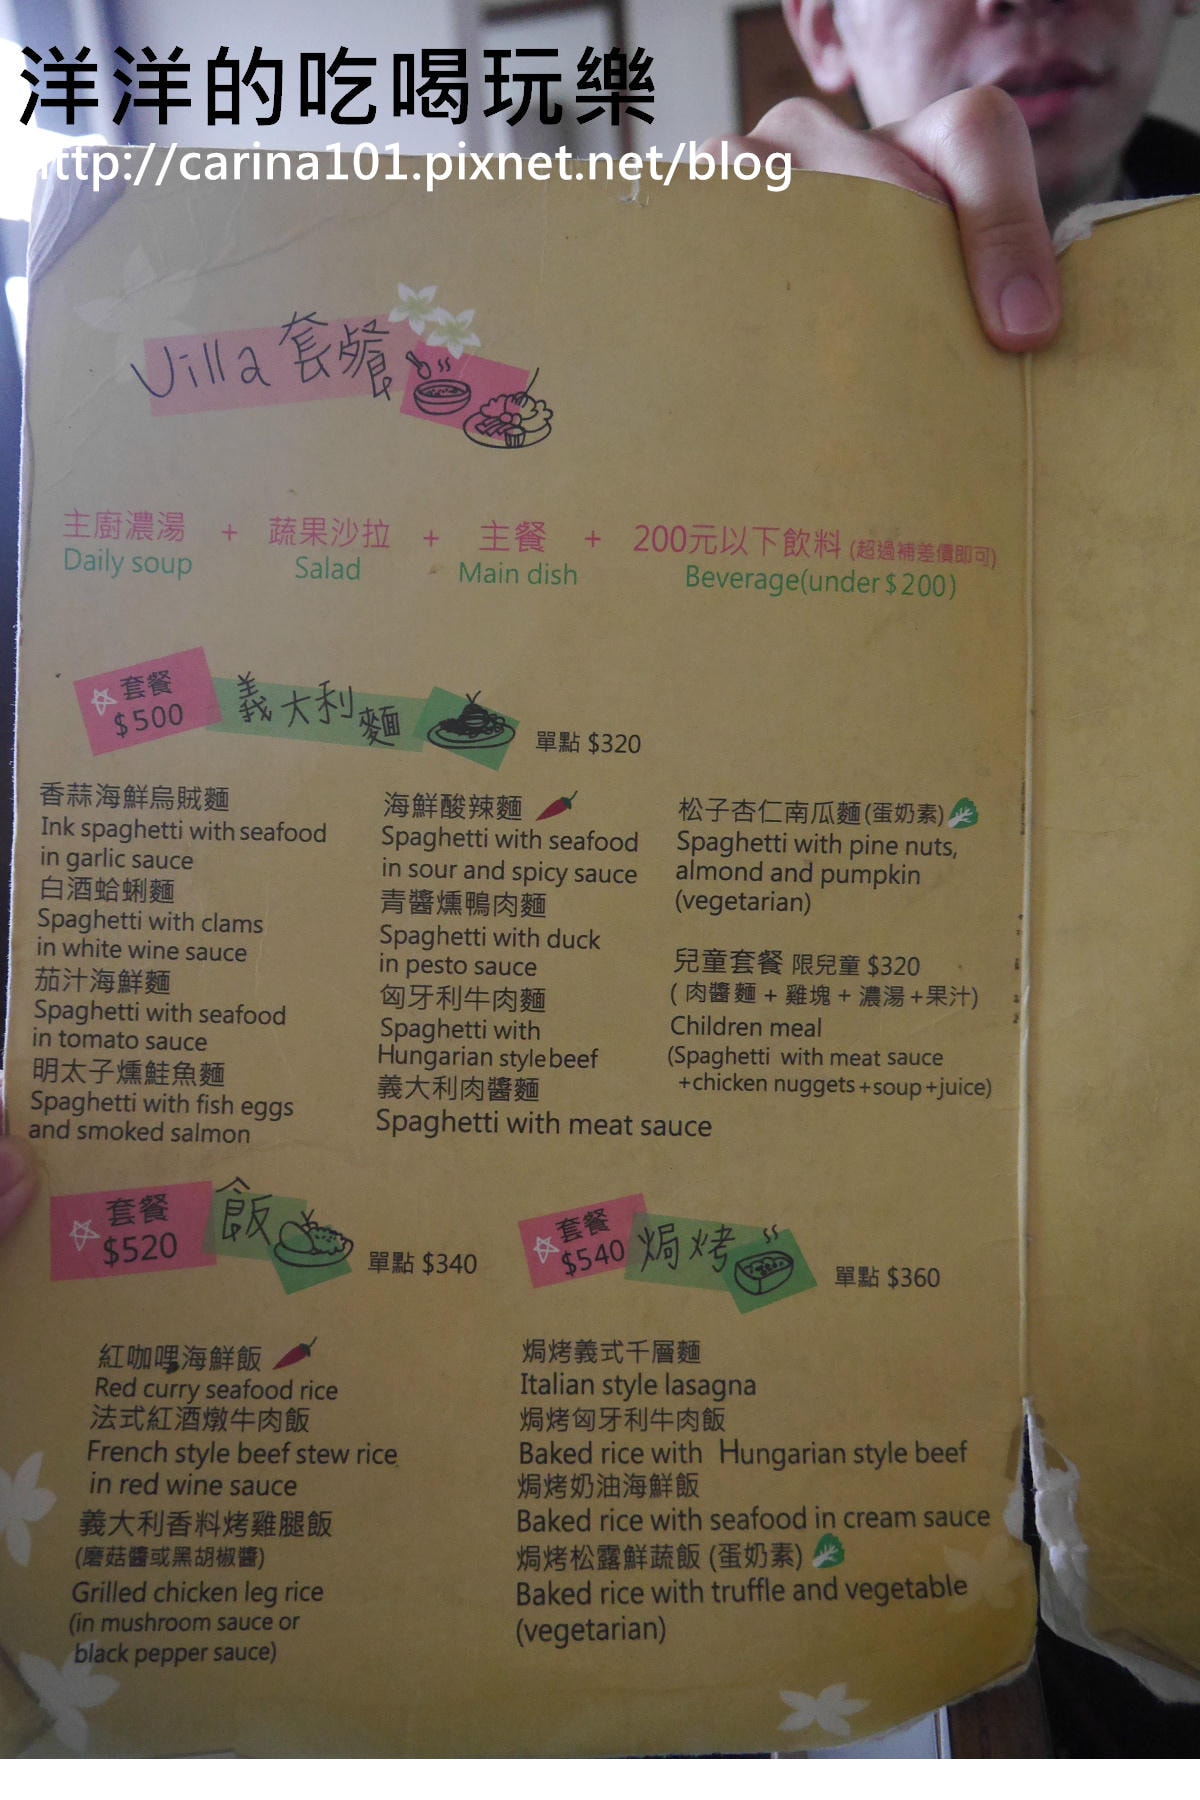 洋洋的吃喝玩樂
http://carina101.pixnet.net/blog
Villa 套餐
主廚濃湯 + 蔬果沙拉 + 主餐 + 200元以下飲料 (超過補差價即可)
Daily soup Salad Main dish Beverage(under $200)
套餐
$500
義大利麵
單點 $320
香蒜海鮮烏賊麵
Ink spaghetti with seafood
in garlic sauce
白酒蛤蜊麵
Spaghetti with clams
in white wine sauce
茄汁海鮮麵
Spaghetti with seafood
in tomato sauce
明太子燻鮭魚麵
Spaghetti with fish eggs
and smoked salmon
海鮮酸辣麵
Spaghetti with seafood
in sour and spicy sauce
青醬燻鴨肉麵
Spaghetti with duck
in pesto sauce
匈牙利牛肉麵
Spaghetti with
Hungarian style beef
義大利肉醬麵
Spaghetti with meat sauce
松子杏仁南瓜麵(蛋奶素)
Spaghetti with pine nuts,
almond and pumpkin
(vegetarian)
兒童套餐 限兒童 $320
(肉醬麵 + 雞塊 + 濃湯 +果汁)
Children meal
(Spaghetti with meat sauce
+chicken nuggets +soup +juice)
套餐
$520
飯
單點 $340
紅咖哩海鮮飯
Red curry seafood rice
法式紅酒燉牛肉飯
French style beef stew rice
in red wine sauce
義大利香料烤雞腿飯
(磨菇醬或黑胡椒醬)
Grilled chicken leg rice
(in mushroom sauce or
black pepper sauce)
套餐
$540
焗烤
單點 $360
焗烤義式千層麵
Italian style lasagna
焗烤匈牙利牛肉飯
Baked rice with Hungarian style beef
焗烤奶油海鮮飯
Baked rice with seafood in cream sauce
焗烤松露鮮蔬飯 (蛋奶素)
Baked rice with truffle and vegetable
(vegetarian)